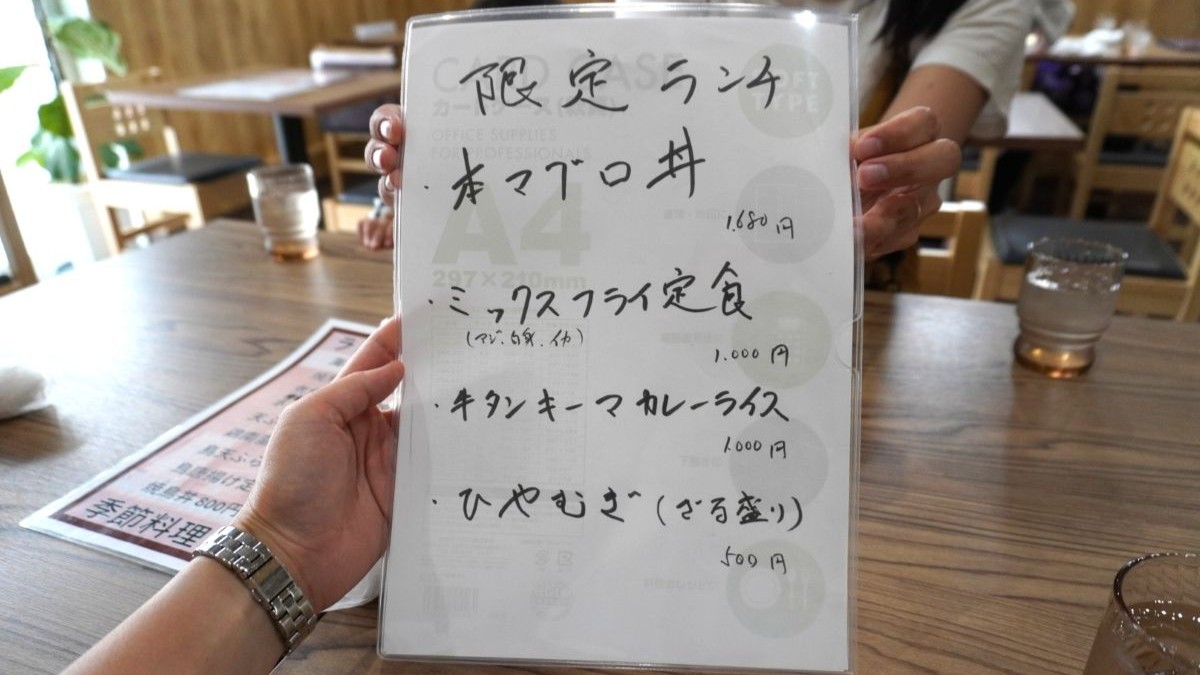 限定ランチ
・本マグロ丼
1.680円
・ミックスフライ定食
(アジ、白身、イカ)
1.000円
・牛タンキーマカレーライス
1.000円
・ひやむぎ(ざる盛り)
500円
CARD CASE
カードケース(軟質)
OFFICE SUPPLIES
FOR PROFESSIONALS
SOFT
TYPE
A4
297×210mm
鳥天ぷら
鳥唐揚げ定
焼鳥丼800円
季節料理